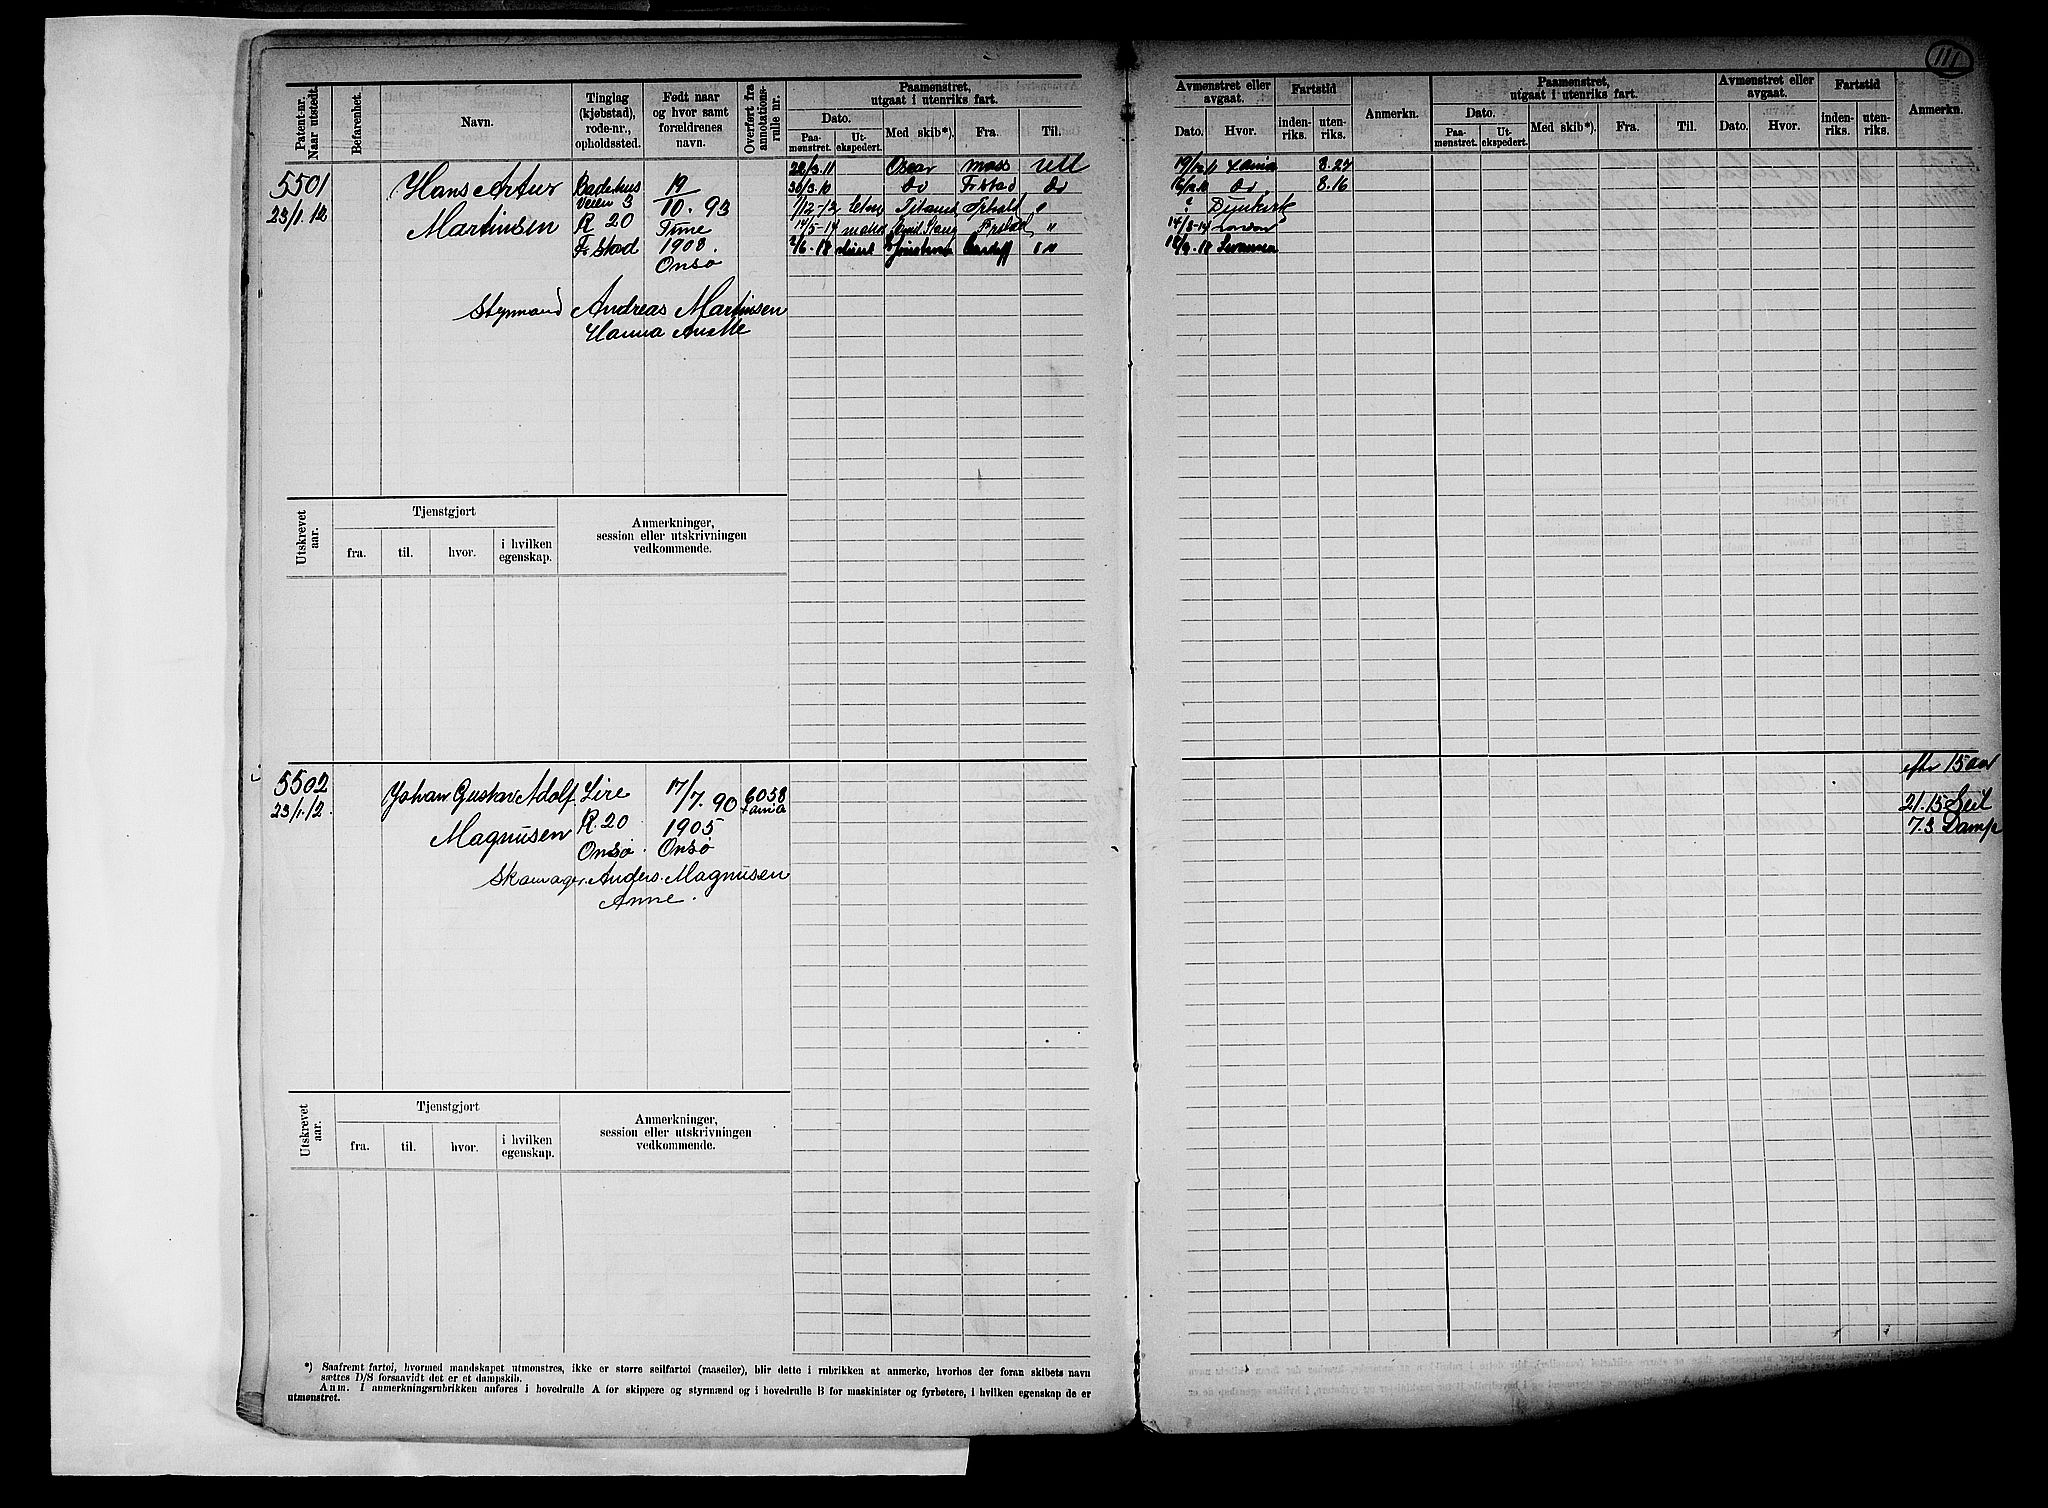 111
Patent-nr. Naar utstedt.
Befarenhet.
Navn.
Tinglag (kjøbstad), rode-nr., opholdssted.
Født naar og hvor samt forældrenes navn.
Overført fra annotations-rulle nr.
Paamønstret, utgaat i utenriks fart.
Dato.
Paa-mønstret.
Ut-ekspedert.
Med skib*).
Fra.
Til.
Avmønstret eller avgaat.
Dato.
Hvor.
Fartstid
inden-riks.
uten-riks.
Anmerkn.
Paamønstret, utgaat i utenriks fart.
Dato.
Paa-mønstret.
Ut-ekspedert.
Med skib*).
Fra.
Til.
Avmønstret eller avgaat.
Dato.
Hvor.
Fartstid
inden-riks.
uten-riks.
Anmerkn.
5501
23/1.12
Hans Artur
Martinsen
Badehus
Veien 3
R 20
Fr stad
19
10. 93
Tune
1908
Onsø
Styrmand Andreas Martinsen
Hanna
22/3.11 Oscar Moss
30/3.10 Do Frstad Do
7/12-12 Titania
14/5-14
2/6.18 Cardiff
3.27
Do 8.16
Dunkirk
14/8-14 London
Utskrevet aar.
Tjenstgjort
fra. til. hvor. i hvilken egenskap.
Anmerkninger, session eller utskrivningen vedkommende.
5502
23/1.12
Johan Gustav Adolf
Magnusen
Lire
R. 20
Onsø
17/7. 90
1905
Onsø
6058
Anders Magnusen
Anne.
15 aar
21.15 Seil
7.3 Damp
Utskrevet aar.
Tjenstgjort
fra. til. hvor. i hvilken egenskap.
Anmerkninger, session eller utskrivningen vedkommende.
*) Saafremt fartøi, hvormed mandskapet utmønstres, ikke er større seilfartøi (raaseiler), blir dette i rubrikken at anmerke, hvorhos der foran skibets navn
sættes D/S forsaavidt det er et dampskib.
Anm. I anmerkningsrubrikken anføres i hovedrulle A for skippere og styrmænd og i hovedrulle B for maskinister og fyrbøtere, i hvilken egenskap de er
utmønstret.